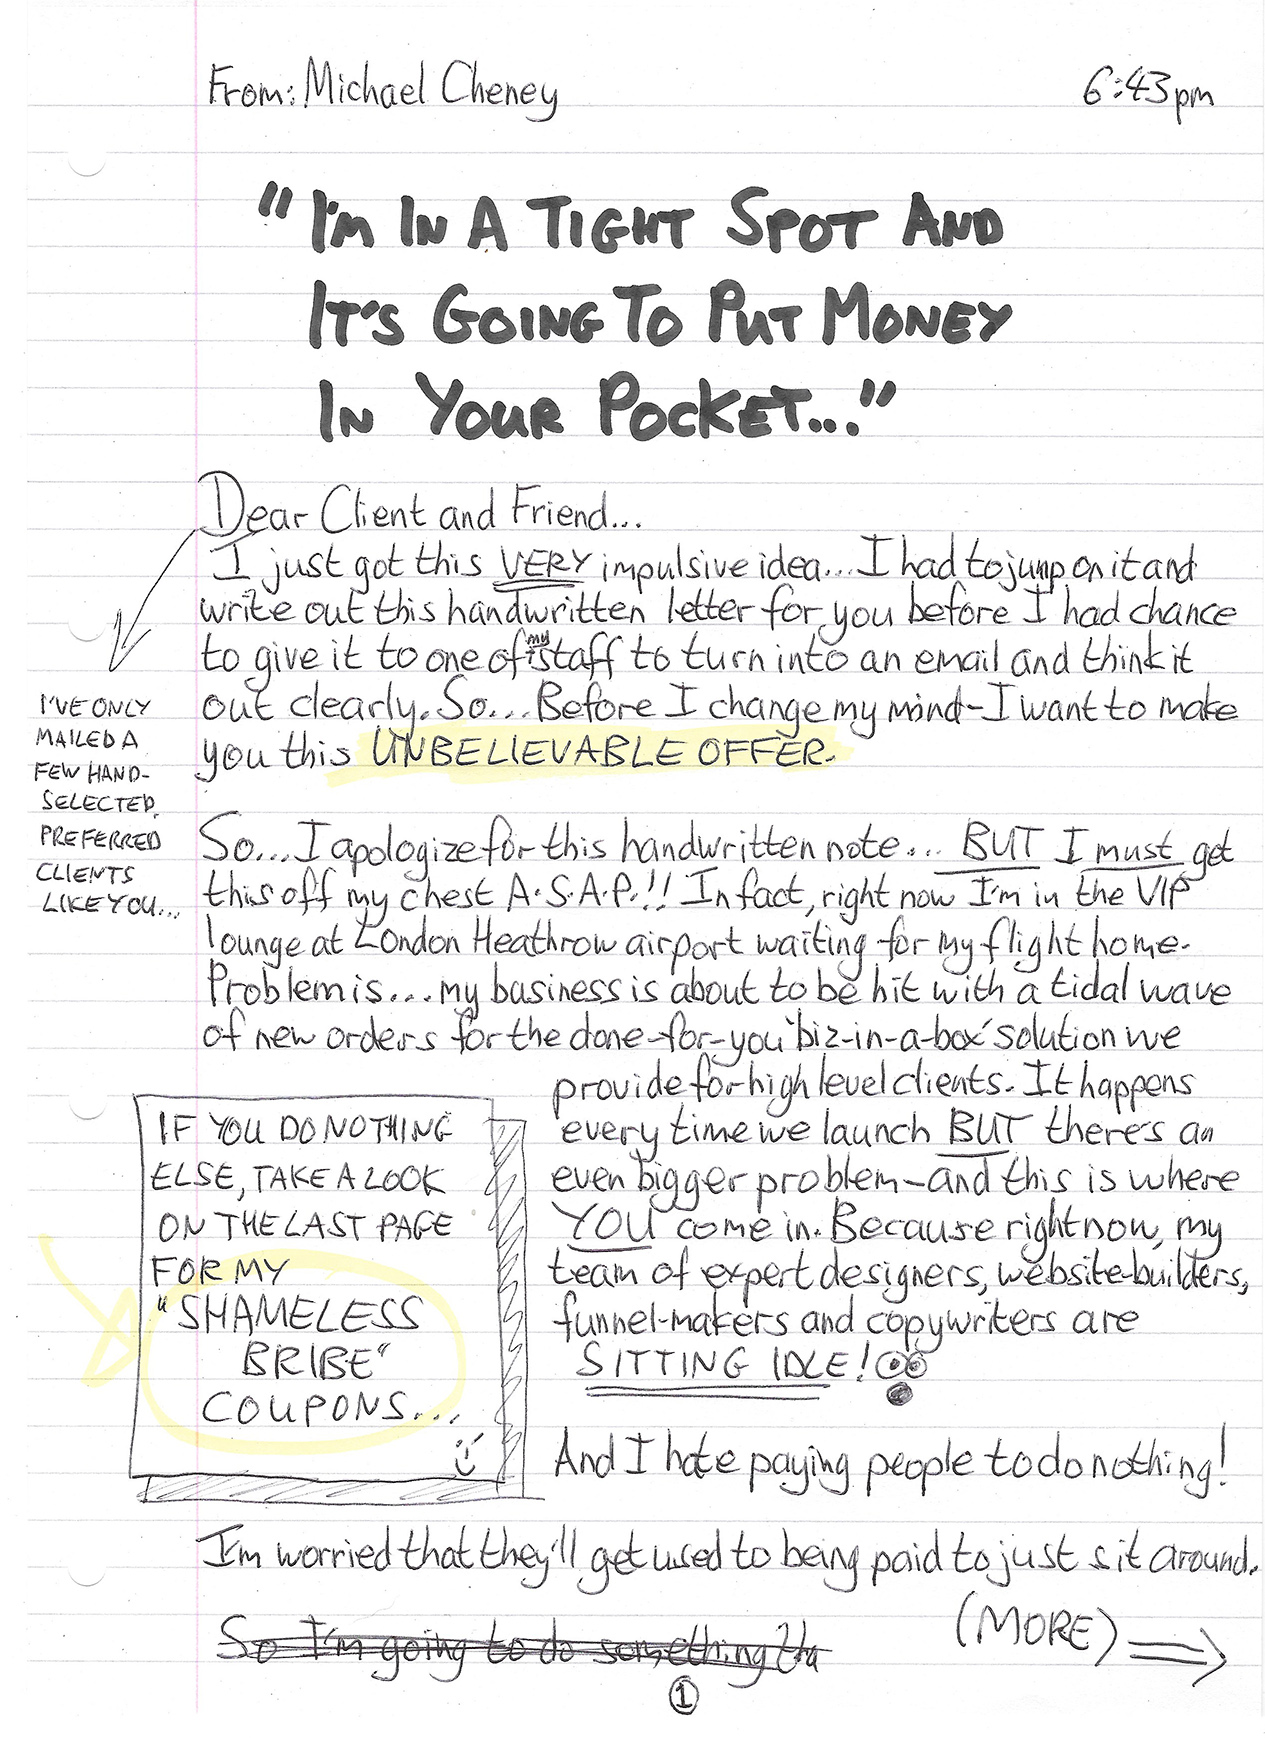 From: Michael Cheney
6:43pm
"I'M IN A TIGHT SPOT AND
IT'S GOING TO PUT MONEY
IN YOUR POCKET..."
Dear Client and Friend...
I just got this VERY impulsive idea... I had to jump on it and
write out this handwritten letter for you before I had chance
to give it to one of my staff to turn into an email and think it
out clearly. So... Before I change my mind - I want to make
you this UNBELIEVABLE OFFER.
I'VE ONLY
MAILED A
FEW HAND-
SELECTED,
PREFERRED
CLIENTS
LIKE YOU...
So... I apologize for this handwritten note... BUT I must get
this off my chest A.S.A.P.!! In fact, right now I'm in the VIP
lounge at London Heathrow airport waiting for my flight home.
Problem is... my business is about to be hit with a tidal wave
of new orders for the done-for-you 'biz-in-a-box' solution we
provide for high level clients. It happens
every time we launch BUT there's an
even bigger problem - and this is where
YOU come in. Because right now, my
team of expert designers, website-builders,
funnel-makers and copywriters are
SITTING IDLE!
IF YOU DO NOTHING
ELSE, TAKE A LOOK
ON THE LAST PAGE
FOR MY
"SHAMELESS
BRIBE"
COUPONS...
And I hate paying people to do nothing!
I'm worried that they'll get used to being paid to just sit around.
So I'm going to do something tha
(MORE)
1